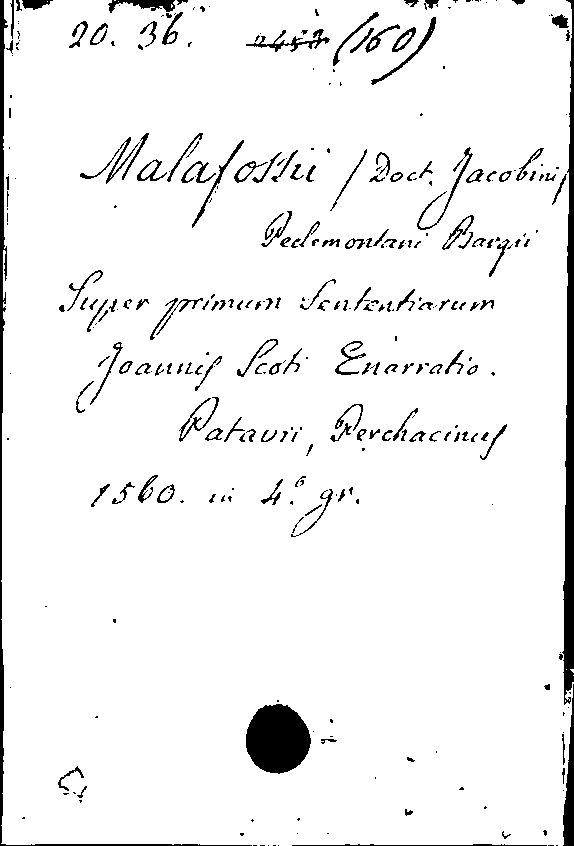 20. 36. 2453 (160)
Malafossii / Doct. Jacobini
Pedemontani Bargii
Super primum Sententiarum
Joannis Scoti Enarratio.
Patavii, Perchacinus
1560. in 4.º gr.